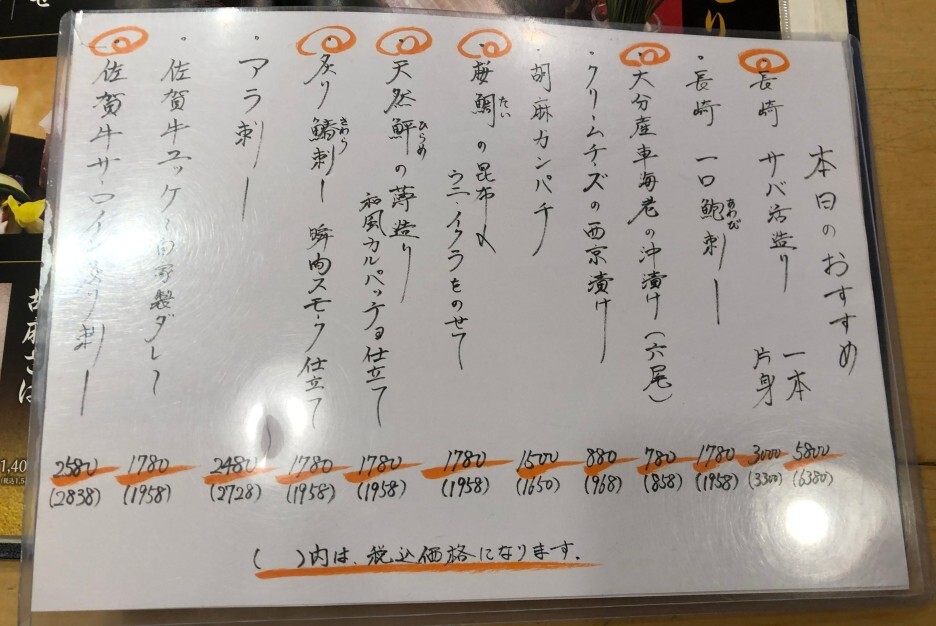 本日のおすすめ
長崎 サバ活造り 一本
片身
・長崎 一口鮑刺
あわび
大分産車海老の沖漬け(六尾)
・クリームチーズの西京漬け
・胡麻カンパチ
桜鯛の昆布〆
たい
ウニ・イクラをのせて
天然鮃の薄造り
ひらめ
和風カルパッチョ仕立て
炙り鰆刺 瞬間スモーク仕立て
さわら
・アラ刺
・佐賀牛ユッケ 自家製ダレ
佐賀牛サーロイン炙り刺
2580 1780 2480 1780 1780 1780 1500 880 780 1780 3000 5800
(2838) (1958) (2728) (1958) (1958) (1958) (1650) (968) (858) (1958) (3300) (6380)
( )内は、税込価格になります.
胡麻さば
1,40